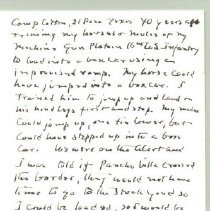 Camp Cotton, El Paso Texas 40 years ago
training my horses & mules of my
Machine Gun Platoon 16th U.S. Infantry
to load into a box car using an
improvised ramp. My horse could
have jumped into a box car. I
trained him to jump up and land on
his hind legs first and stop. My mule
could jump up, one tie lower, but
could have stepped up into a box
car. We were on the alert and
I was told if Pancho Villa crossed
the border, they would not have
time to go to the stock yard so
I could be loaded, so I would be